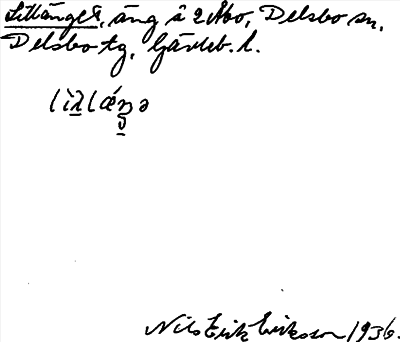 Lillänget, äng å 2 Åbo, Delsbo sn,
Delsbo tg, Gävleb. l.
Nils Erik Eriksson 1936.